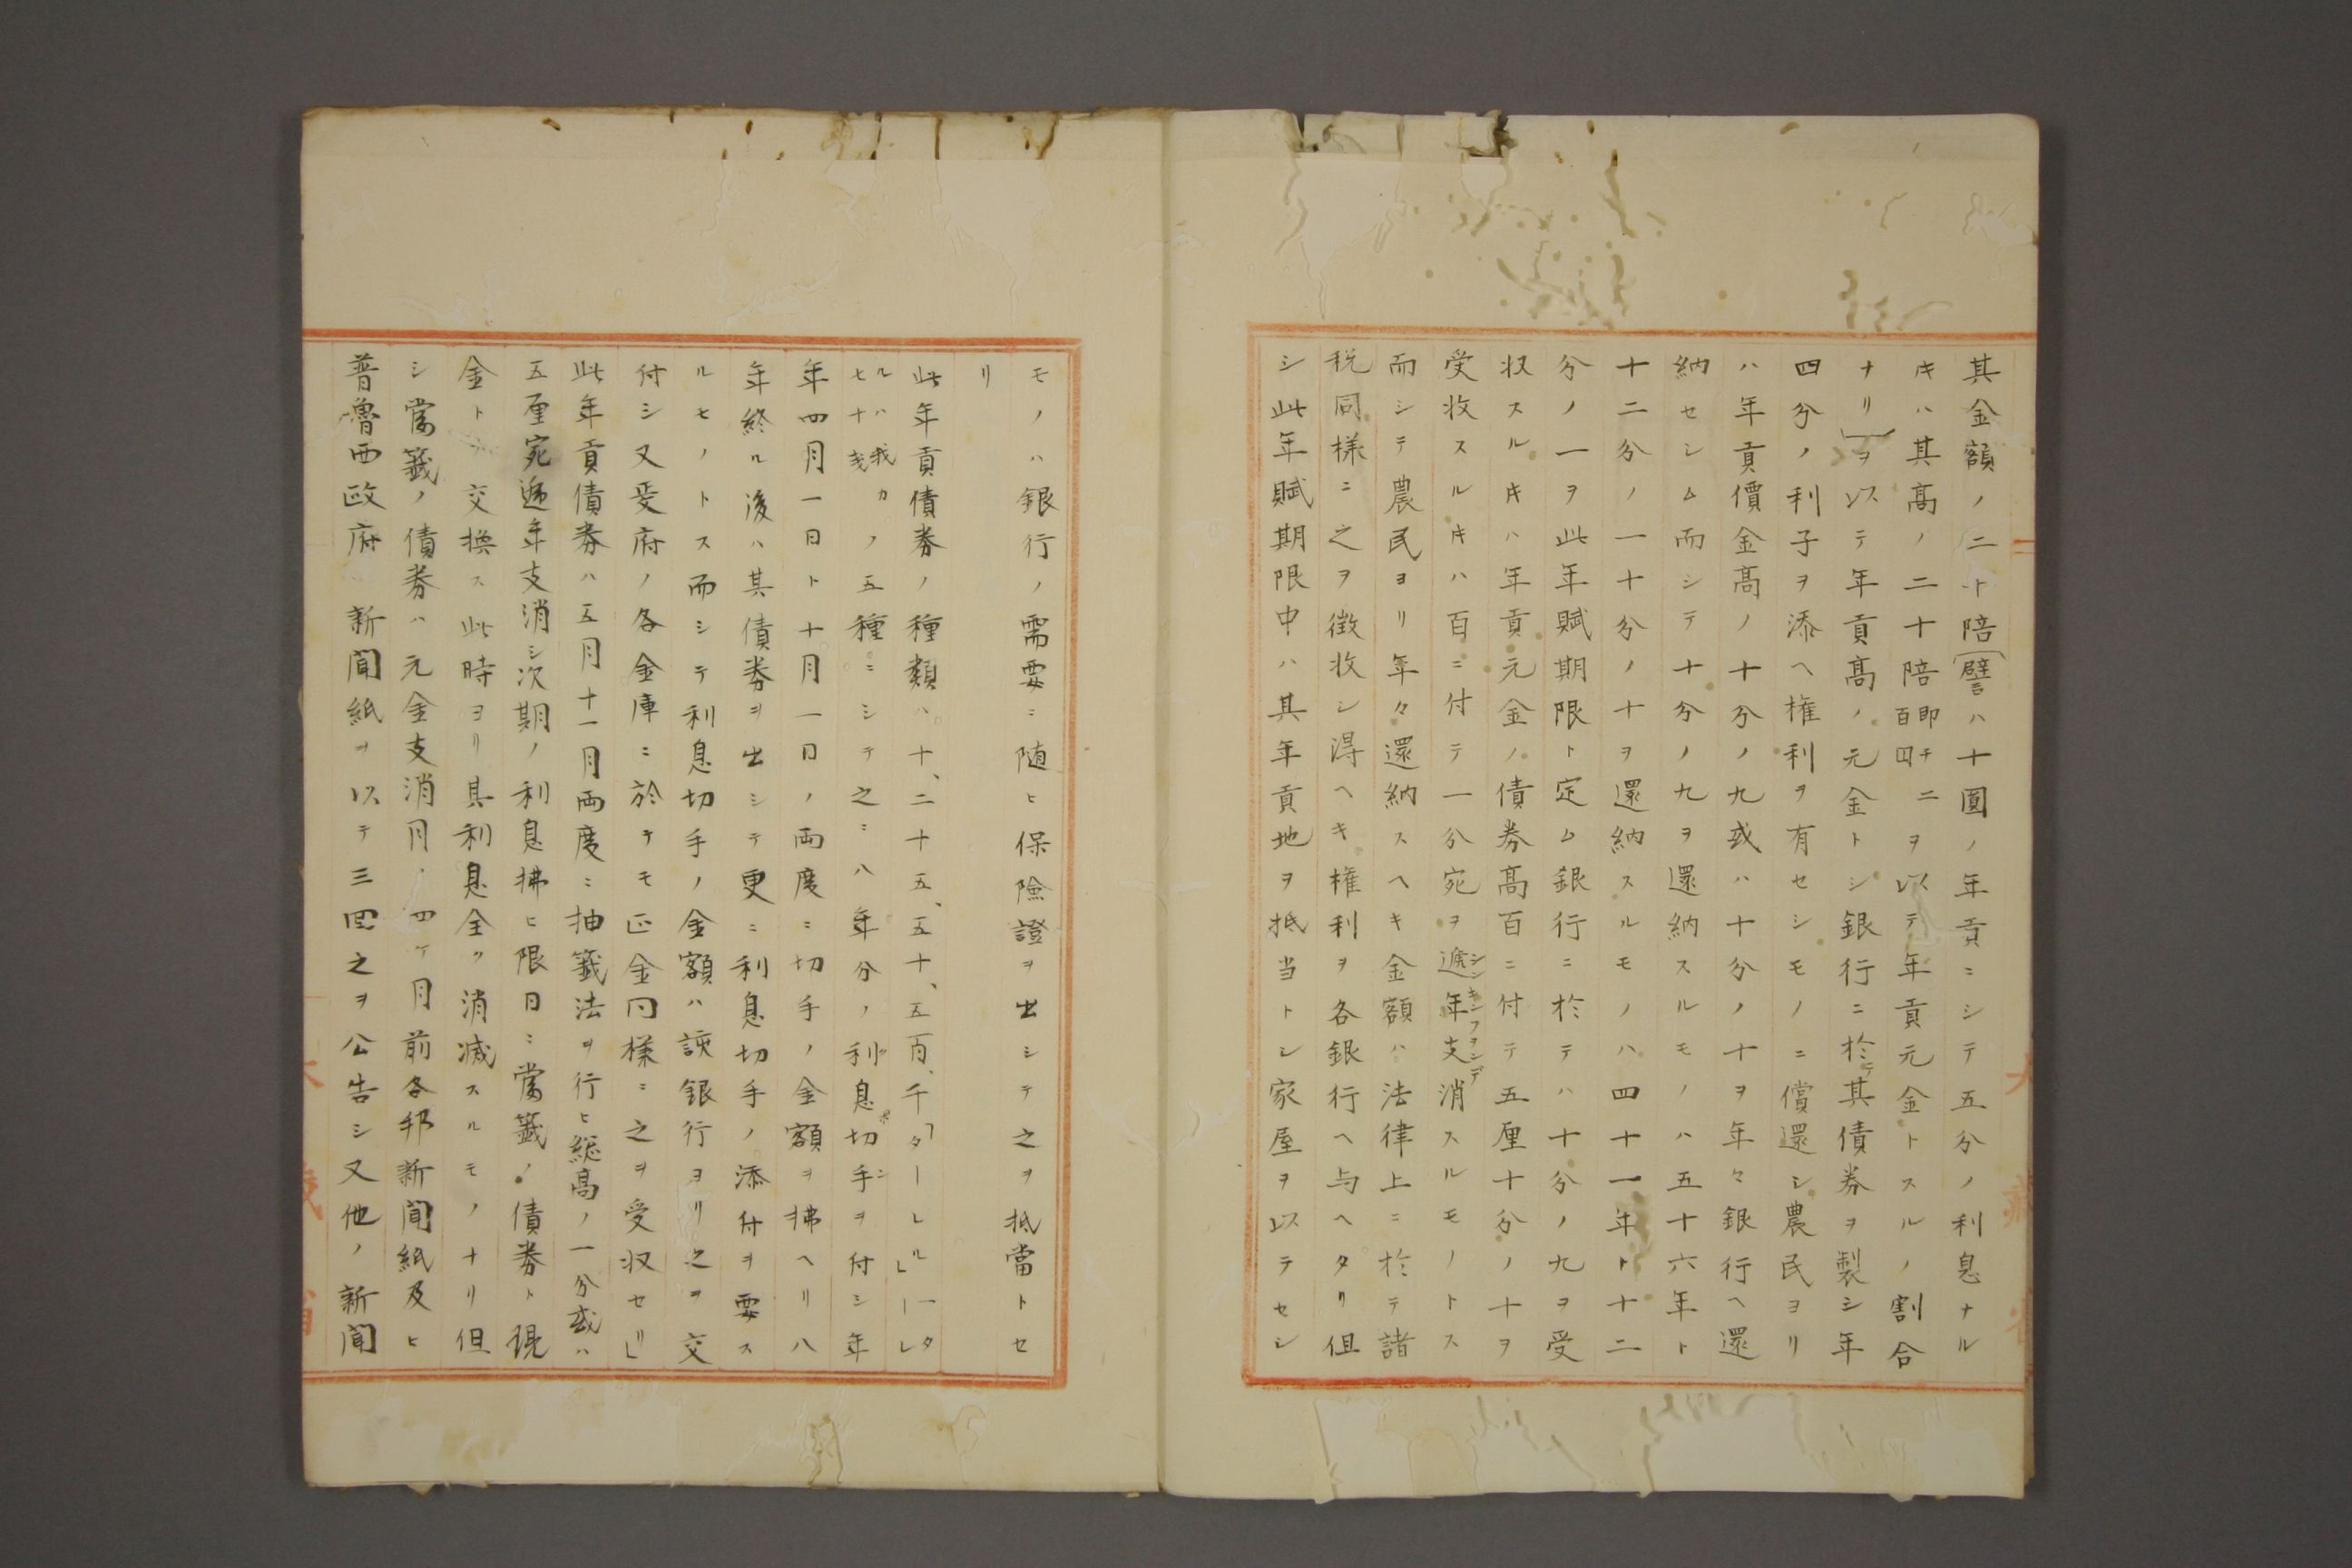 其金額ノ二十陪(譬ハ十圓ノ年貢ニシテ五分ノ利息ナル
キハ其髙ノ二十陪即チ百四ニヲ以テ年貢元金トスルノ割合
ナリ)ヲ以テ年貢髙ノ元金トシ銀行ニ於テ其債券ヲ製シ年
四分ノ利子ヲ添ヘ権利ヲ有セシモノニ償還シ農民ヨリ
ハ年貢價金髙ノ十分ノ九或ハ十分ノ十ヲ年々銀行ヘ還
納セシム而シテ十分ノ九ヲ還納スルモノハ五十六年ト
十二分ノ一十分ノ十ヲ還納スルモノハ四十一年ト十二
分ノ一ヲ此年賦期限ト定ム銀行ニ於テハ十分ノ九ヲ受
収スルキハ年貢元金ノ債券髙百ニ付テ五厘十分ノ十ヲ
受收スルキハ百ニ付テ一分宛ヲ遞年支消スルモノトス
而シテ農民ヨリ年々還納スヘキ金額ハ法律上ニ於テ諸
税同様ニ之ヲ徴收シ淂ヘキ権利ヲ各銀行ヘ与ヘタリ但
シ此年賦期限中ハ其年貢地ヲ抵当トシ家屋ヲ以テセシ
モノハ銀行ノ需要ニ随ヒ保險證ヲ出シテ之ヲ抵當トセ
リ
此年貢債券ノ種類ハ十、二十五、五十、五百、千「タールレル」一タレ
ルハ我カ七十銭ノ五種ニシテ之ニ八年分ノ利息切手ヲ付シ年
年四月一日ト十月一日ノ両度ニ切手ノ金額ヲ拂ヘリ八
年終ル後ハ其債券ヲ出シテ更ニ利息切手ノ添付ヲ要ス
ルモノトス而シテ利息切手ノ金額ハ該銀行ヨリ之ヲ交
付シ又受府ノ各金庫ニ於テモ正金同様ニ之ヲ受収セリ」
此年貢債券ハ五月十一月両度ニ抽籤法ヲ行ヒ総髙ノ一分或ハ
五厘宛逓年支消シ次期ノ利息拂ヒ限日ニ當籤ノ債券ト現
金ト交換ス此時ヨリ其利息全ク消滅スルモノナリ但
シ當籤ノ債券ハ元金支消月ノ四ケ月前各邦新聞紙及ヒ
普魯西政府新聞紙ヲ以テ三回之ヲ公告シ又他ノ新聞